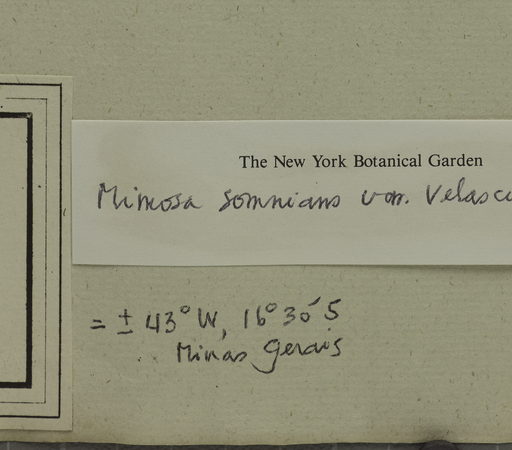 The New York Botanical Garden
Mimosa somnians var. Velasci
= ± 43° W, 16° 30' S
Minas Gerais